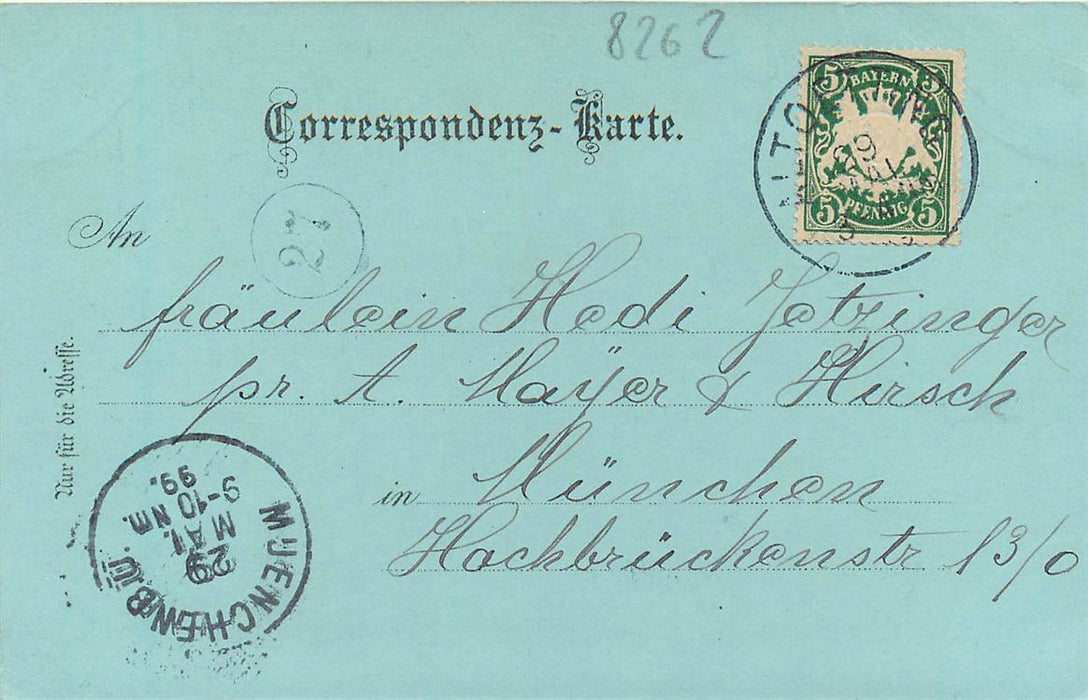 8262
5 5
BAYERN
5 PFENNIG 5
29
MAI
Correspondenz-Karte.
27
An
Fräulein Hedi Jetzinger
pr. A. Mayer & Hirsch
in München
Hochbrückenstr 13/0
Nur für die Adresse.
MUENCHEN B.Ü.
29
MAI.
9-10 NM.
99.